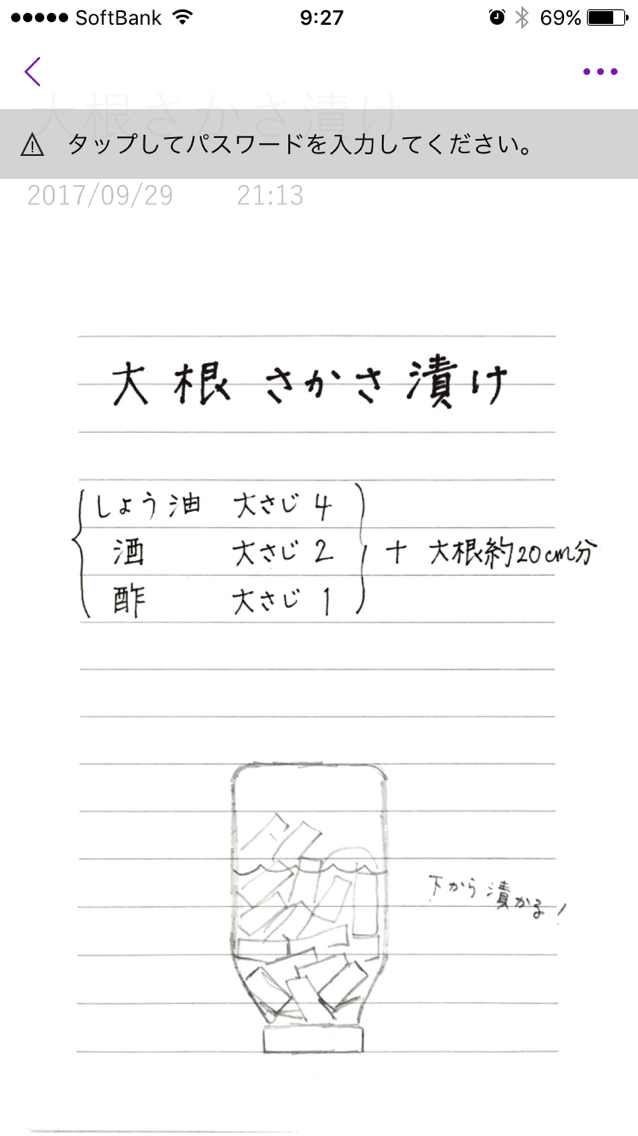 SoftBank 9:27 69%
大根さかさ漬け
タップしてパスワードを入力してください。
2017/09/29 21:13
大根さかさ漬け
しょう油 大さじ 4
酒 大さじ 2 + 大根約20cm分
酢 大さじ 1
下から漬かる!